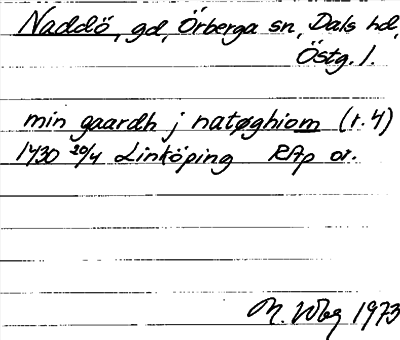 Naddö, gd, Örberga sn, Dals hd,
Östg. l.
min gaardh j natøghiom (r. 4)
1430 20/4 Linköping RAp or.
M. Wbg 1973